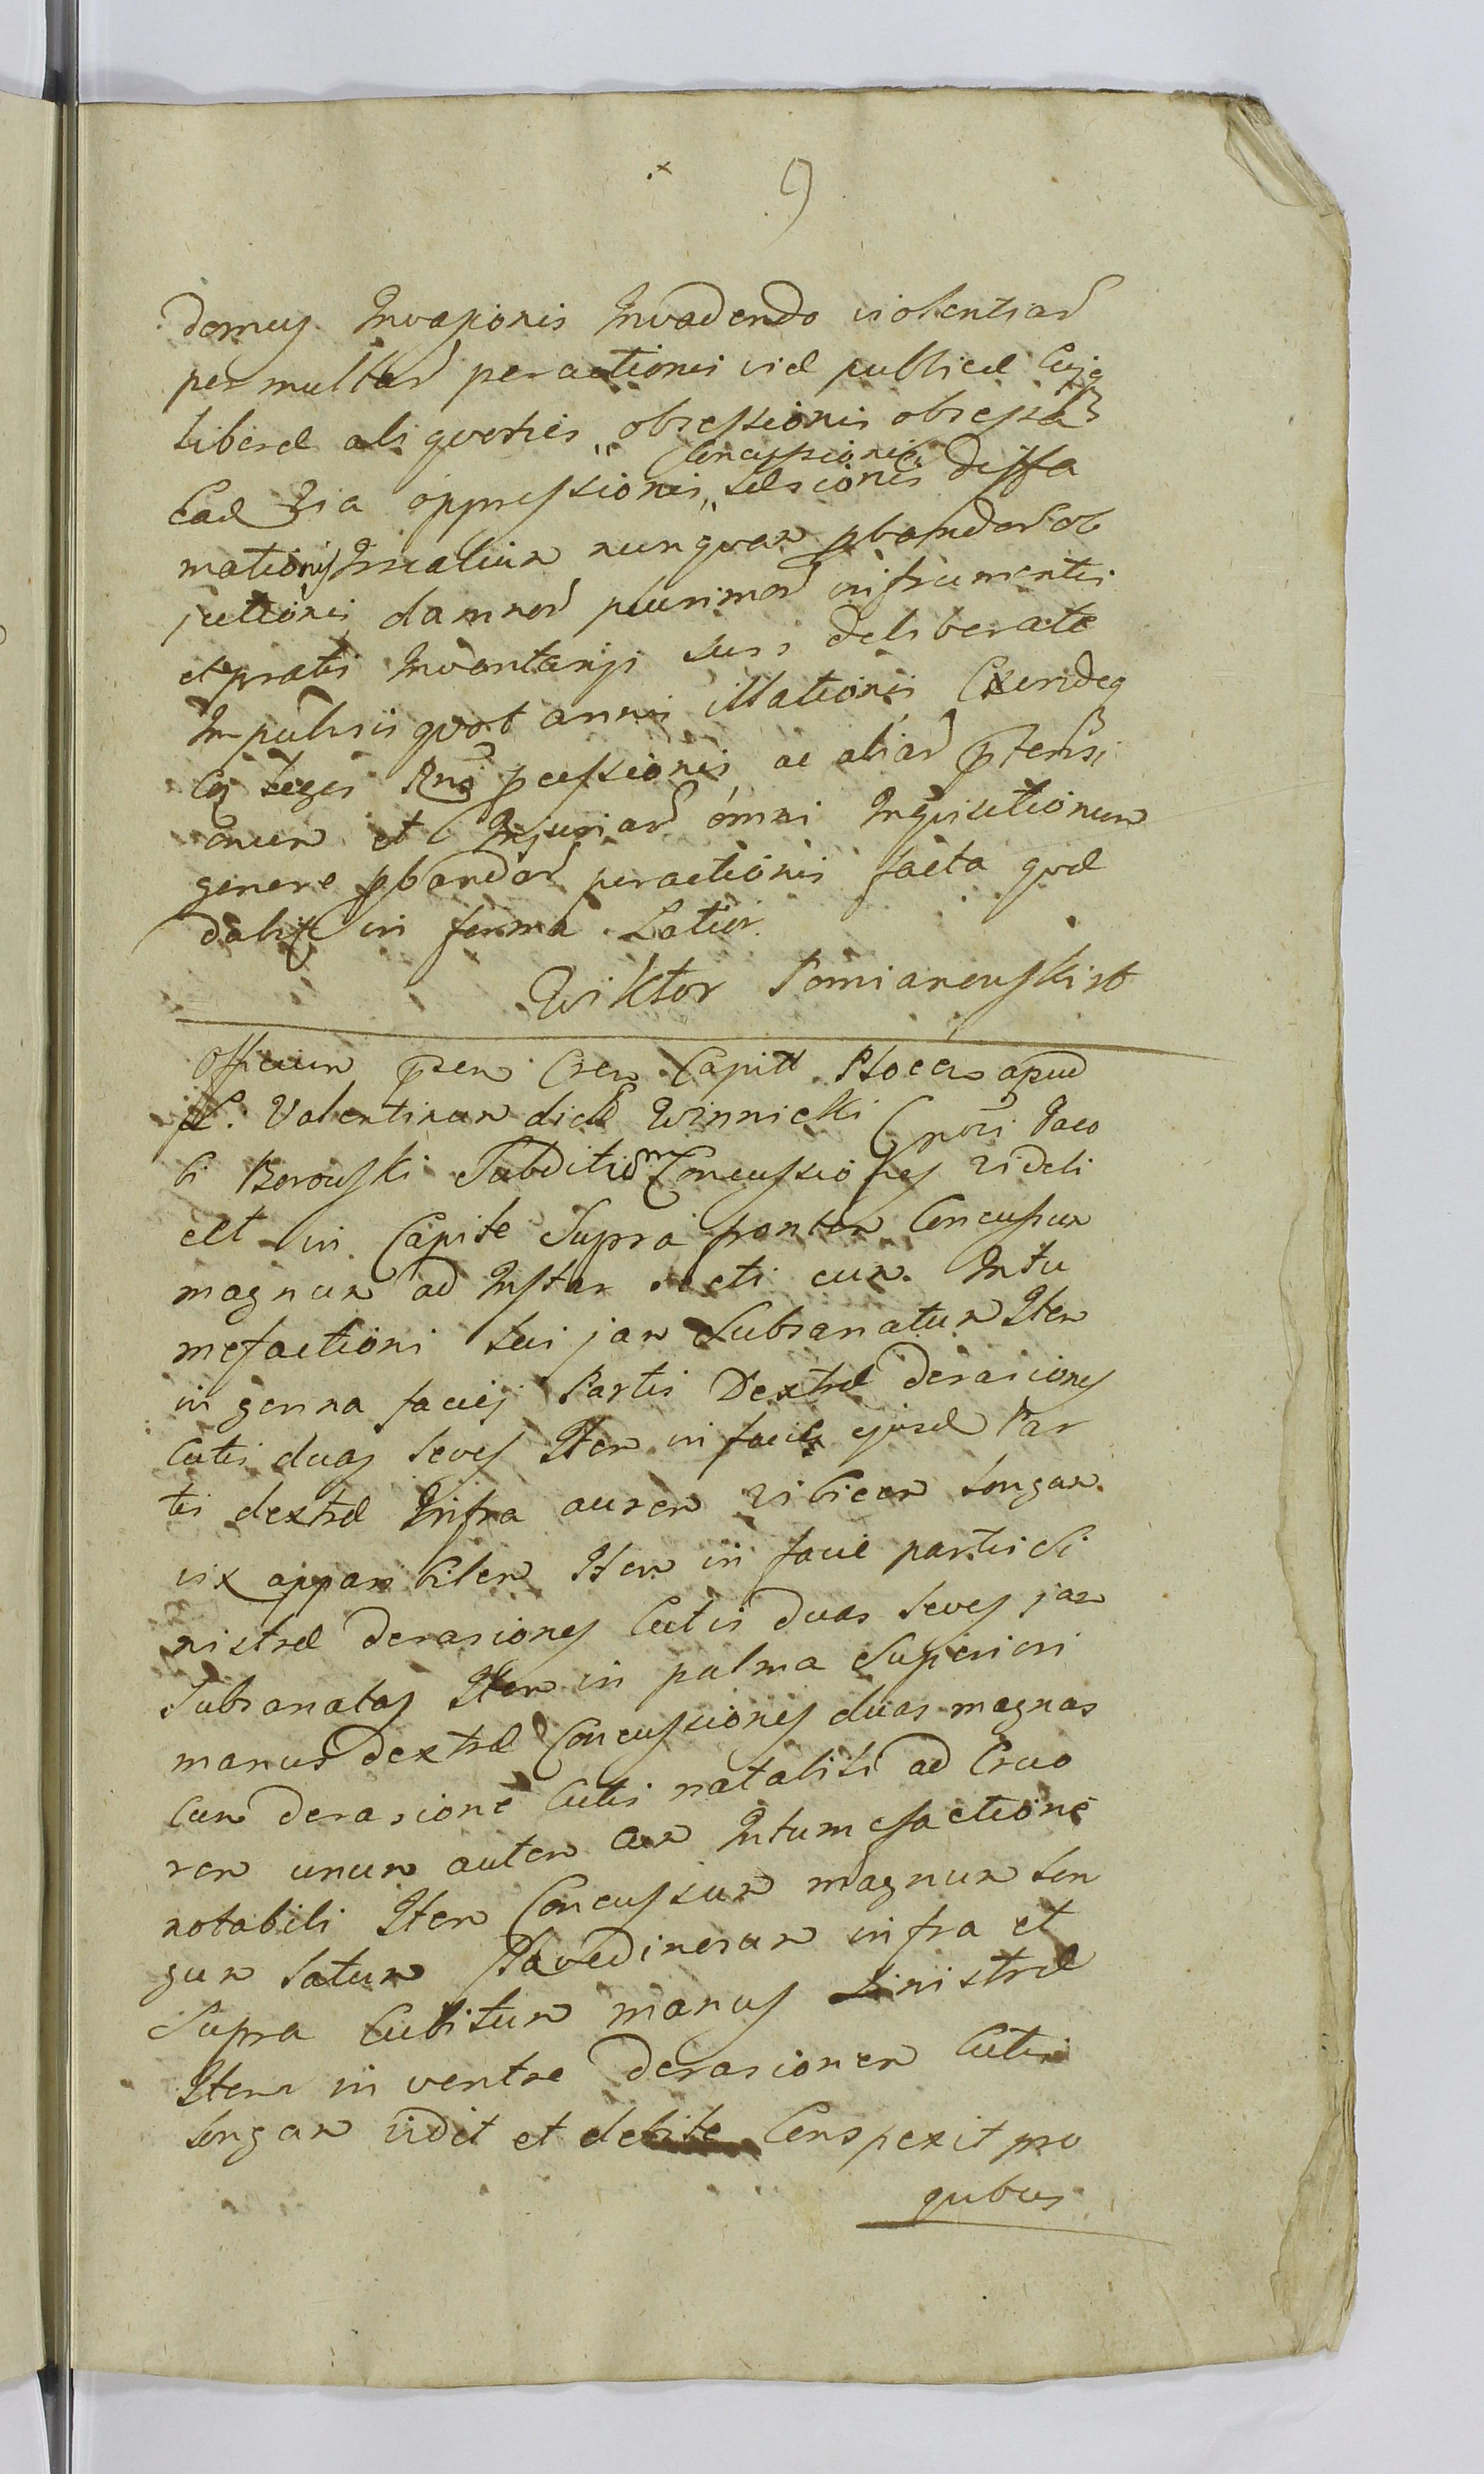 9
domus Invasionis Invadendo violentiar
per multar peractionis viæ publicæ Cujq
liberæ aliquoties obsessionis obsessa
Concussionis
Eaq via oppressionis Læsionis diffa
mationis Irrealium nunquam pbandar ob
jectionis damnor plurimor in frumentis
et pratis Inventarijs suis deliberate
Impulsis quot annis illationis Exindeq
Cog leges Rnj pcessionis ac aliar ptensi
onum et Injuriar omni Inquisitionum
genere pbandar peractionis facta quæ
dabit in forma Latior
Wiktor Pomianowski
Officium psen Cren Capitt Plocen apud
Valentinum dictt Winnicki Gnosi Jaco
bi Borowski Subditum Concussiones videli
cet in Capite Supra frontem Concussum
magnum ad Instar cum Intu
mefactioni sui jam Subsanatum Item
in genna faciej Partis Dextræ derasiones
Cutis duas leves Item in facie ejusd Par
tis dextræ Infra aurem vibicem longam
vix apparibilem Item in facie partis Si
nistræ derasiones Cutis duas leves jam
Subsanatas Item in palma Superiori
manus dextræ Concussiones duas magnas
Cum derasione Cutis natalis ad Cruo
rem unum autem cum Intumefactione
notabili Item Concussum magnum lon
gum latum flavedinosum infra et
Supra Cubitum manus Sinistræ
Item in ventre derasionem Cutis
longam vidit et debite Conspexit pro
quibus